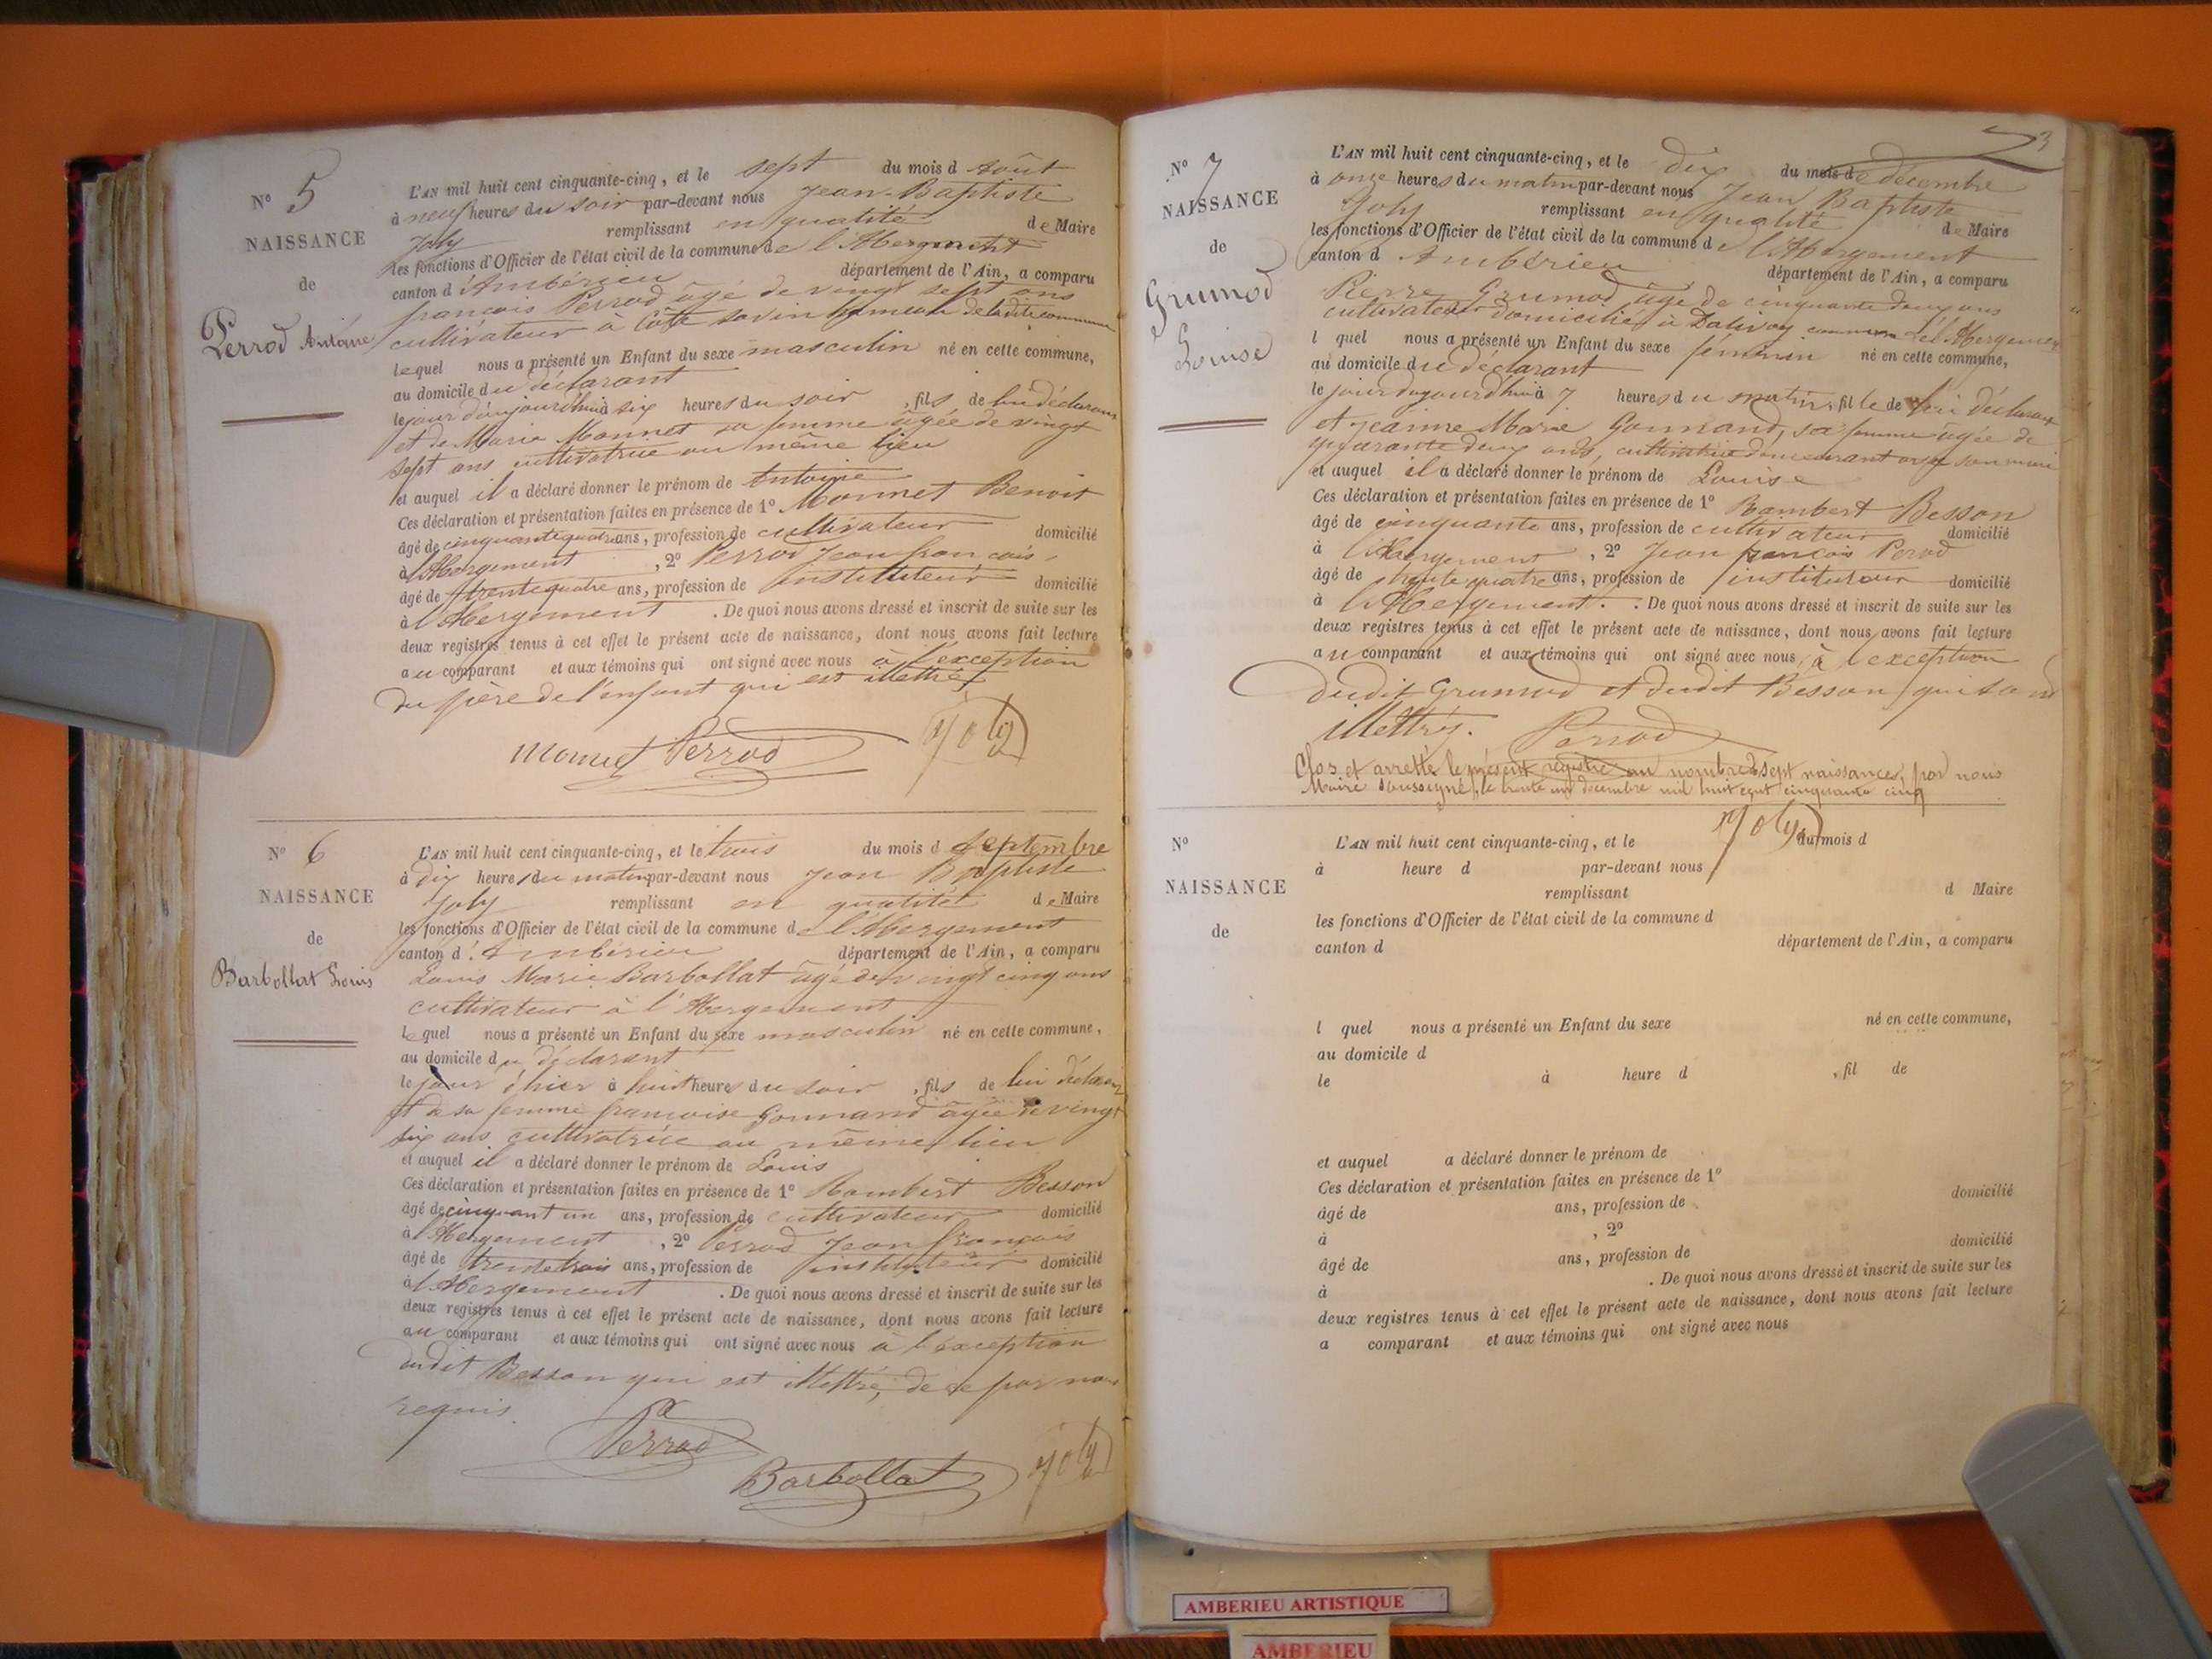 N° 5
NAISSANCE
de
Perrod Antoine
L'AN mil huit cent cinquante-cinq, et le sept du mois d Août
à neuf heures du soir par-devant nous Jean-Baptiste
Joly remplissant en qualité de Maire
les fonctions d'Officier de l'état civil de la commune de l'Abergement
canton d'Ambérieu département de l'Ain, a comparu
françois Perrod âgé de vingt sept ans
cultivateur à Côte savin hameau de ladite commune
lequel nous a présenté un Enfant du sexe masculin né en cette commune,
au domicile du déclarant
le jour d'aujourd'hui à six heures du soir, fils de lui déclarant
et de Marie Monnet sa femme âgée de vingt
sept ans cultivatrice au même lieu
et auquel il a déclaré donner le prénom de Antoine
Ces déclaration et présentation faites en présence de 1° Monnet Benoit
âgé de cinquante quatre ans, profession de cultivateur domicilié
à l'Abergement, 2° Perrod Jean françois,
âgé de trente quatre ans, profession de instituteur domicilié
à l'Abergement. De quoi nous avons dressé et inscrit de suite sur les
deux registres tenus à cet effet le présent acte de naissance, dont nous avons fait lecture
au comparant et aux témoins qui ont signé avec nous à l'exception
du père de l'enfant qui est illettré
Monnet Perrod Joly
N° 6
NAISSANCE
de
Barbollat Louis
L'AN mil huit cent cinquante-cinq, et le trois du mois d septembre
à dix heures du matin par-devant nous Jean Baptiste
Joly remplissant en qualité de Maire
les fonctions d'Officier de l'état civil de la commune de l'Abergement
canton d'Ambérieu département de l'Ain, a comparu
Louis Marie Barbollat âgé de vingt cinq ans
cultivateur à l'Abergement
lequel nous a présenté un Enfant du sexe masculin né en cette commune,
au domicile du déclarant
le jour d'hier à huit heures du soir, fils de lui déclarant
et de sa femme françoise Gonnand âgée de vingt
six ans cultivatrice au même lieu
et auquel il a déclaré donner le prénom de Louis
Ces déclaration et présentation faites en présence de 1° Rambert Besson
âgé de cinquant un ans, profession de cultivateur domicilié
à l'Abergement, 2° Perrod Jean françois
âgé de trente trois ans, profession de instituteur domicilié
à l'Abergement. De quoi nous avons dressé et inscrit de suite sur les
deux registres tenus à cet effet le présent acte de naissance, dont nous avons fait lecture
au comparant et aux témoins qui ont signé avec nous à l'exception
dudit Besson qui est illettré, de ce par nous
requis.
Perrod
Barbollat Joly
3
N° 7
NAISSANCE
de
Grumod
Louise
L'AN mil huit cent cinquante-cinq, et le dix du mois de décembre
à onze heures du matin par-devant nous Jean Baptiste
Joly remplissant en qualité de Maire
les fonctions d'Officier de l'état civil de la commune de l'Abergement
canton d Ambérieu département de l'Ain, a comparu
Pierre Grumod âgé de cinquante deux ans
cultivateur domicilié à Dalivoy commune de l'Abergement
l quel nous a présenté un Enfant du sexe féminin né en cette commune,
au domicile du déclarant
le jour d'aujourd'hui à 7 heures du matin, fille de lui déclarant
et Jeanne Marie Gonnand, sa femme âgée de
quarante deux ans, cultivatrice demeurant avec son mari
et auquel il a déclaré donner le prénom de Louise
Ces déclaration et présentation faites en présence de 1° Rambert Besson
âgé de cinquante ans, profession de cultivateur domicilié
à l'Abergement, 2° Jean françois Perod
âgé de trente quatre ans, profession de instituteur domicilié
à l'Abergement. De quoi nous avons dressé et inscrit de suite sur les
deux registres tenus à cet effet le présent acte de naissance, dont nous avons fait lecture
au comparant et aux témoins qui ont signé avec nous, à l'exception
dudit Grumod et dudit Besson qui sont
illettrés. Perrod
Clos et arretté le présent registre au nombre de sept naissances, par nous
Maire soussigné, le trente un décembre mil huit cent cinquante cinq
Joly
N°
NAISSANCE
de
L'AN mil huit cent cinquante-cinq, et le du mois d
à heure d par-devant nous
remplissant d Maire
les fonctions d'Officier de l'état civil de la commune d
canton d département de l'Ain, a comparu
l quel nous a présenté un Enfant du sexe né en cette commune,
au domicile d
le à heure d , fil de
et auquel a déclaré donner le prénom de
Ces déclaration et présentation faites en présence de 1°
âgé de ans, profession de domicilié
à , 2°
âgé de ans, profession de domicilié
à . De quoi nous avons dressé et inscrit de suite sur les
deux registres tenus à cet effet le présent acte de naissance, dont nous avons fait lecture
a comparant et aux témoins qui ont signé avec nous
AMBERIEU ARTISTIQUE
AMBERIEU